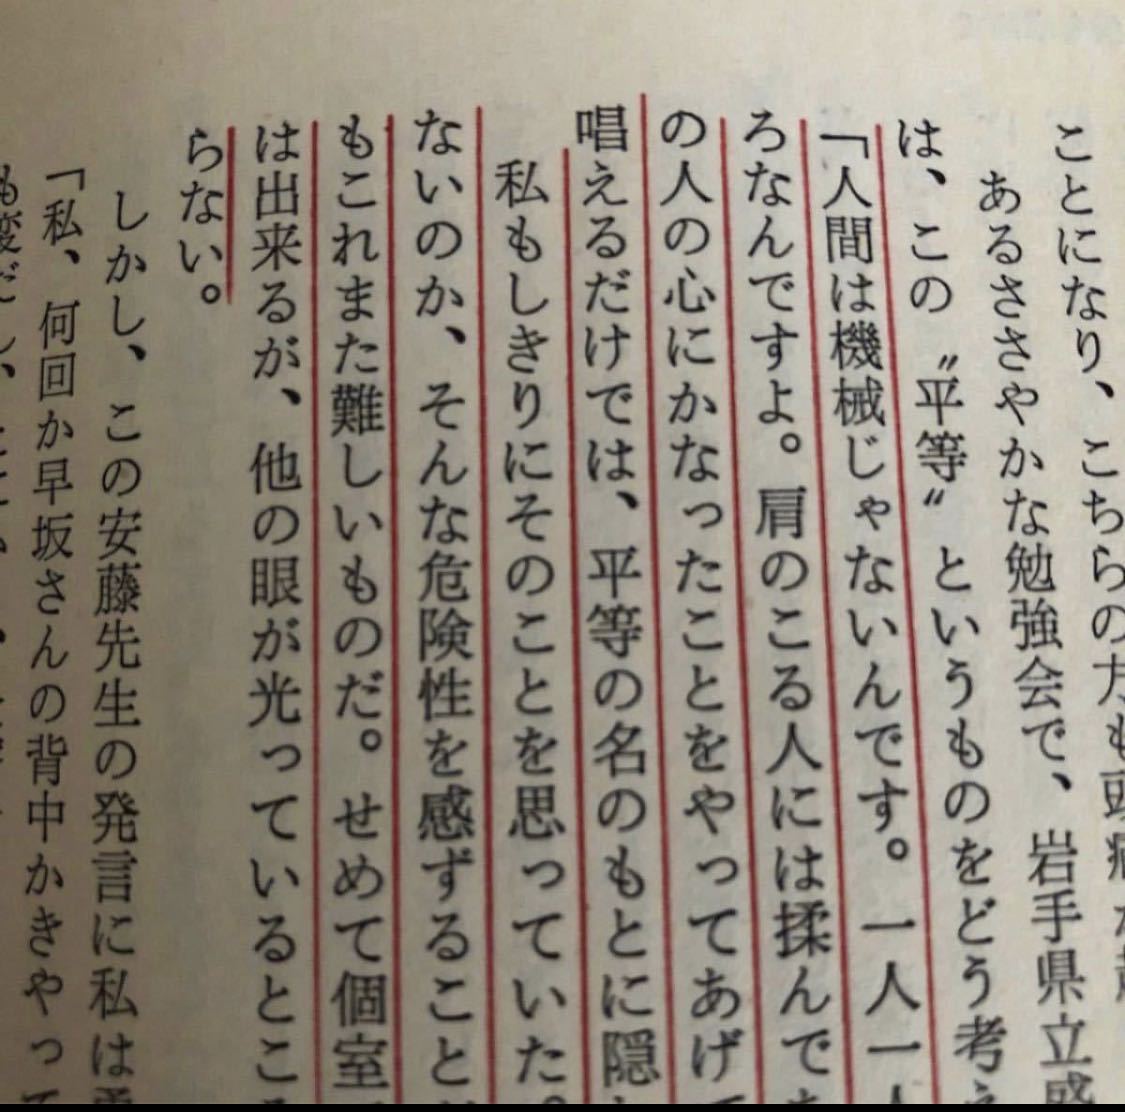 ことになり、こちらの方も頭痛
あるささやかな勉強会で、岩手県立盛
は、この〝平等〟というものをどう考え
「人間は機械じゃないんです。一人一人
ろなんですよ。肩のこる人には揉んで
の人の心にかなったことをやってあげ
唱えるだけでは、平等の名のもとに隠
私もしきりにそのことを思っていた。
ないのか、そんな危険性を感ずること
もこれまた難しいものだ。せめて個室
は出来るが、他の眼が光っているとこ
らない。
しかし、この安藤先生の発言に私は
「私、何回か早坂さんの背中かきやって
も変だし、